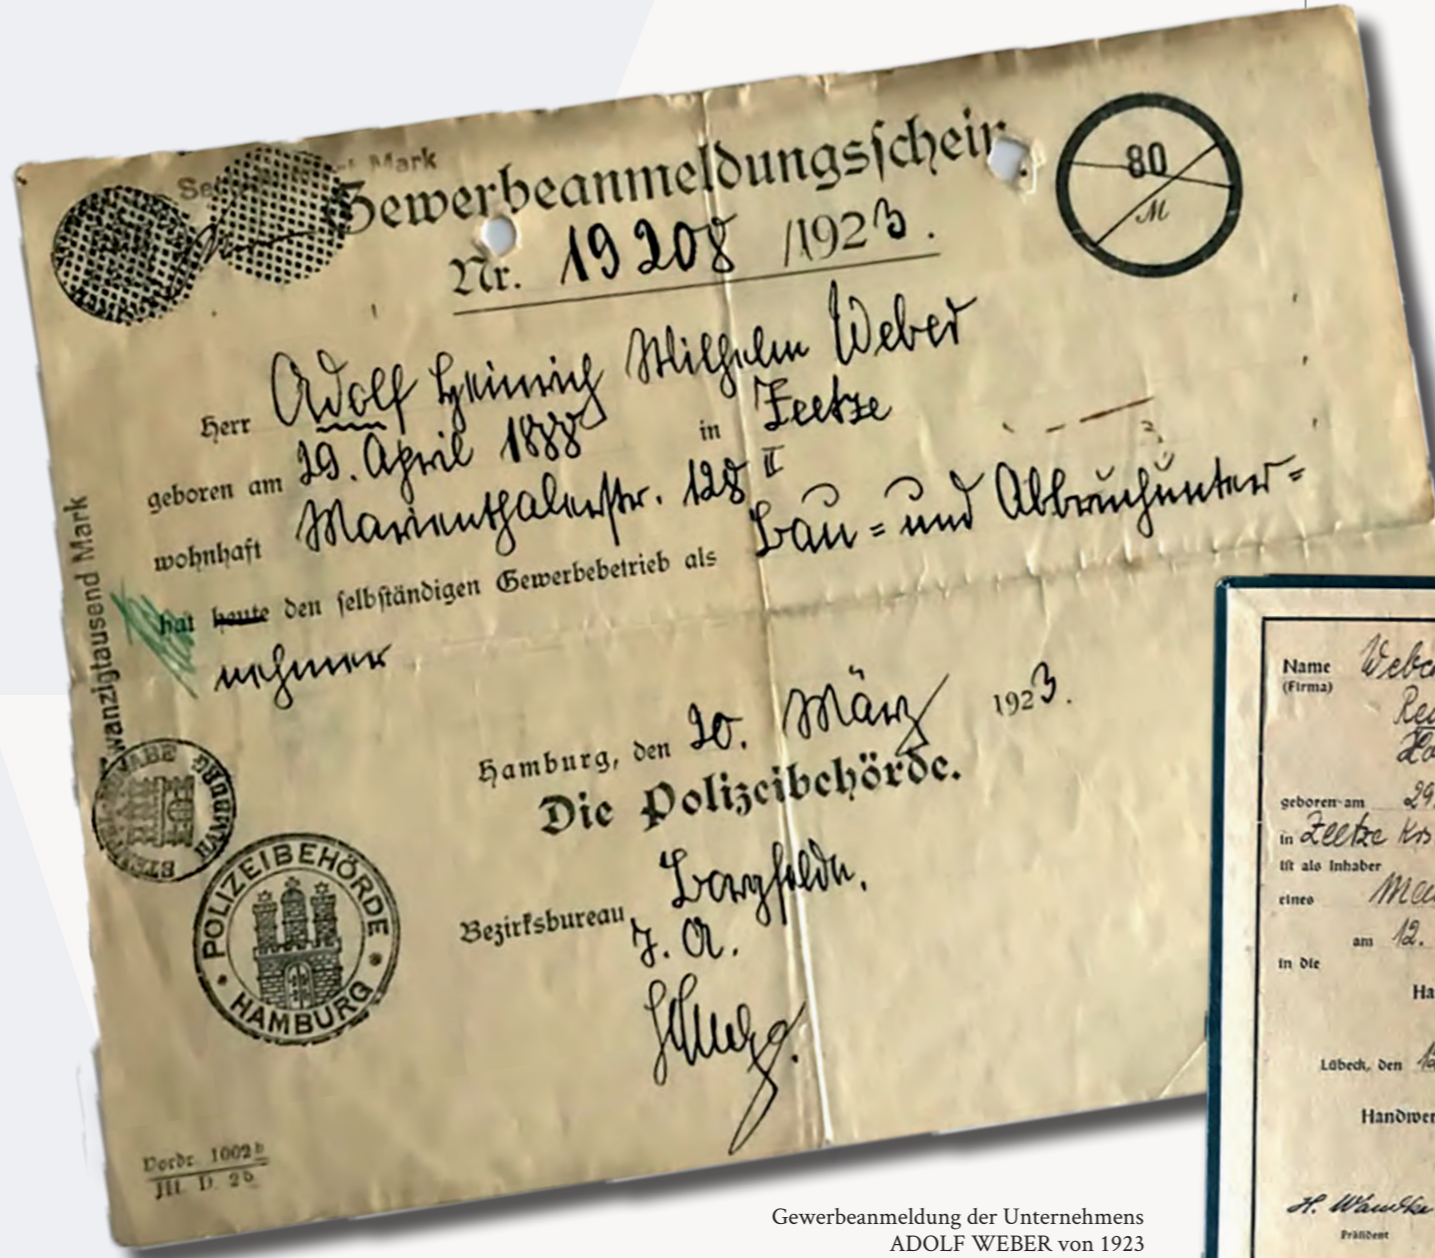 Mark
Gewerbeanmeldungsschein.
80
M
Nr. 19208 /1923.
Herr Adolf Heinrich Wilhelm Weber
geboren am 29. April 1888 in Zeetze
wohnhaft Marienthalerstr. 128 II
hat heute den selbständigen Gewerbebetrieb als Bau- und Abbruchunter-
nehmer
Hamburg, den 20. März 1923.
Die Polizeibehörde.
Bezirksbureau Borgfelde.
J. A.
wanzigtausend Mark
HAMBURG
POLIZEIBEHÖRDE
HAMBURG
Vordr. 1002b
III. D. 2b
Gewerbeanmeldung der Unternehmens
ADOLF WEBER von 1923
Name
(Firma)
geboren am 29.
in Zeetze Krs
ist als Inhaber
eines
am 12.
in die
Ha
Lübeck, den
Handwer
H.
Präsident